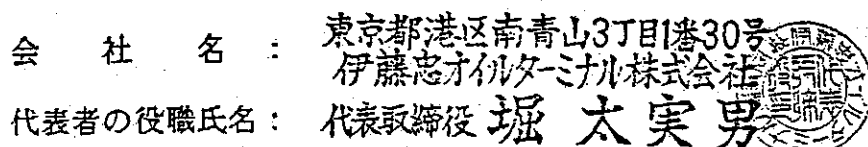 東京都港区南青山3丁目1番30号
会社名： 伊藤忠オイルターミナル株式会社
代表者の役職氏名： 代表取締役 堀太実男